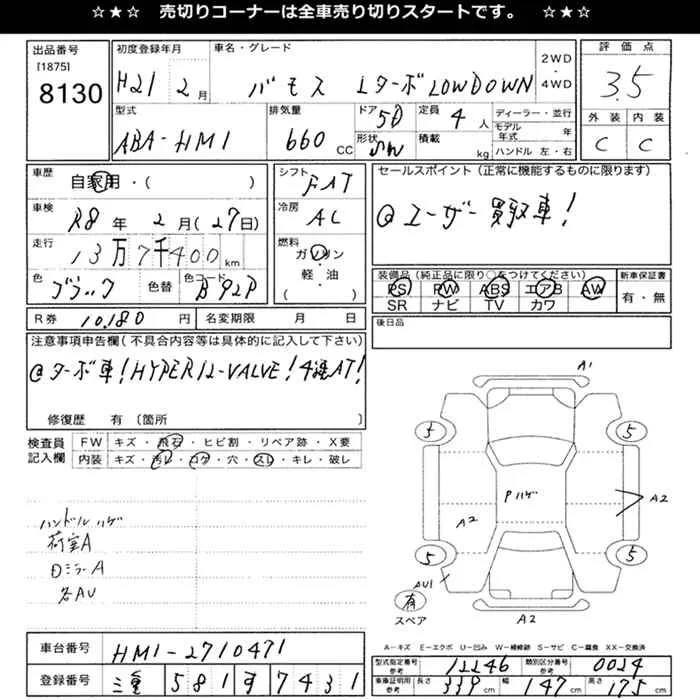 ☆★☆ 売切りコーナーは全車売り切りスタートです。 ☆★☆
出品番号
[1875]
8130
初度登録年月
H21 2月
車名・グレード
バモス Lターボ LOWDOWN
2WD
・
4WD
評価点
3.5
外装 内装
C C
型式
ABA-HM1
排気量
660 CC
ドア 5D
形状 SW
定員 4人
積載 kg
ディーラー・並行
モデル年式 年
ハンドル 左・右
車歴
自家用・( )
車検
R8年2月(27日)
走行
13万7千400km
色 ブラック 色替 色コード B92P
シフト
FAT
冷房
AC
燃料
ガソリン
軽・油
( )
R券 10,180円 名変期限 月 日
セールスポイント(正常に機能するものに限ります)
@ユーザー買取車!
装備品(純正品に限り○をつけてください)
PS PW ABS エアB AW
SR ナビ TV カワ
新車保証書
有・無
後日品
注意事項申告欄(不具合内容等は具体的に記入して下さい)
@ターボ車!HYPER12-VALVE!4速AT!
修復歴 有〔箇所 〕
検査員記入欄
FW キズ・飛石・ヒビ割・リペア跡・X要
内装 キズ・汚レ・コゲ・穴・スレ・キレ・破レ
ハンドルハゲ
荷室A
DミラーA
各AU
A1
5 5
Pハゲ
A2 A2
5 5
AU1
有
スペア
A2
A-キズ E-エクボ U-凹み W-補修跡 S-サビ C-腐食 XX-交換済
車台番号 HM1-2710471
登録番号 三重 581 す 7431
型式指定番号 参考 12246 類別区分番号 参考 0024
車庫証明用 参考 長さ 339cm 幅 147cm 高さ 175cm